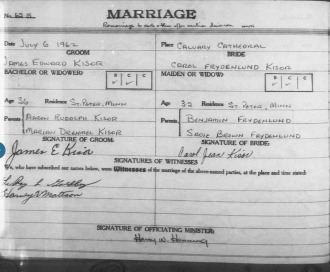 No. 62-15
MARRIAGE
Date July 6 1962 Place Calvary Cathedral
GROOM BRIDE
James Edward Kisor Carol Frydenlund Kisor
BACHELOR OR WIDOWER? B C C MAIDEN OR WIDOW? B C C
Age 36 Residence St. Peter, Minn Age 32 Residence St. Peter, Minn
Parents: Aaron Rudolph Kisor Parents: Benjamin Frydenlund
Marian Drengel Kisor Sadie Brown Frydenlund
SIGNATURE OF GROOM: SIGNATURE OF BRIDE:
James E Kisor Carol Jean Kisor
SIGNATURES OF WITNESSES
We, who have subscribed our names below, were Witnesses of the marriage of the above-named parties, at the place and time stated:
LeRoy L.
Harvey Mattson
SIGNATURE OF OFFICIATING MINISTER:
Harry W.